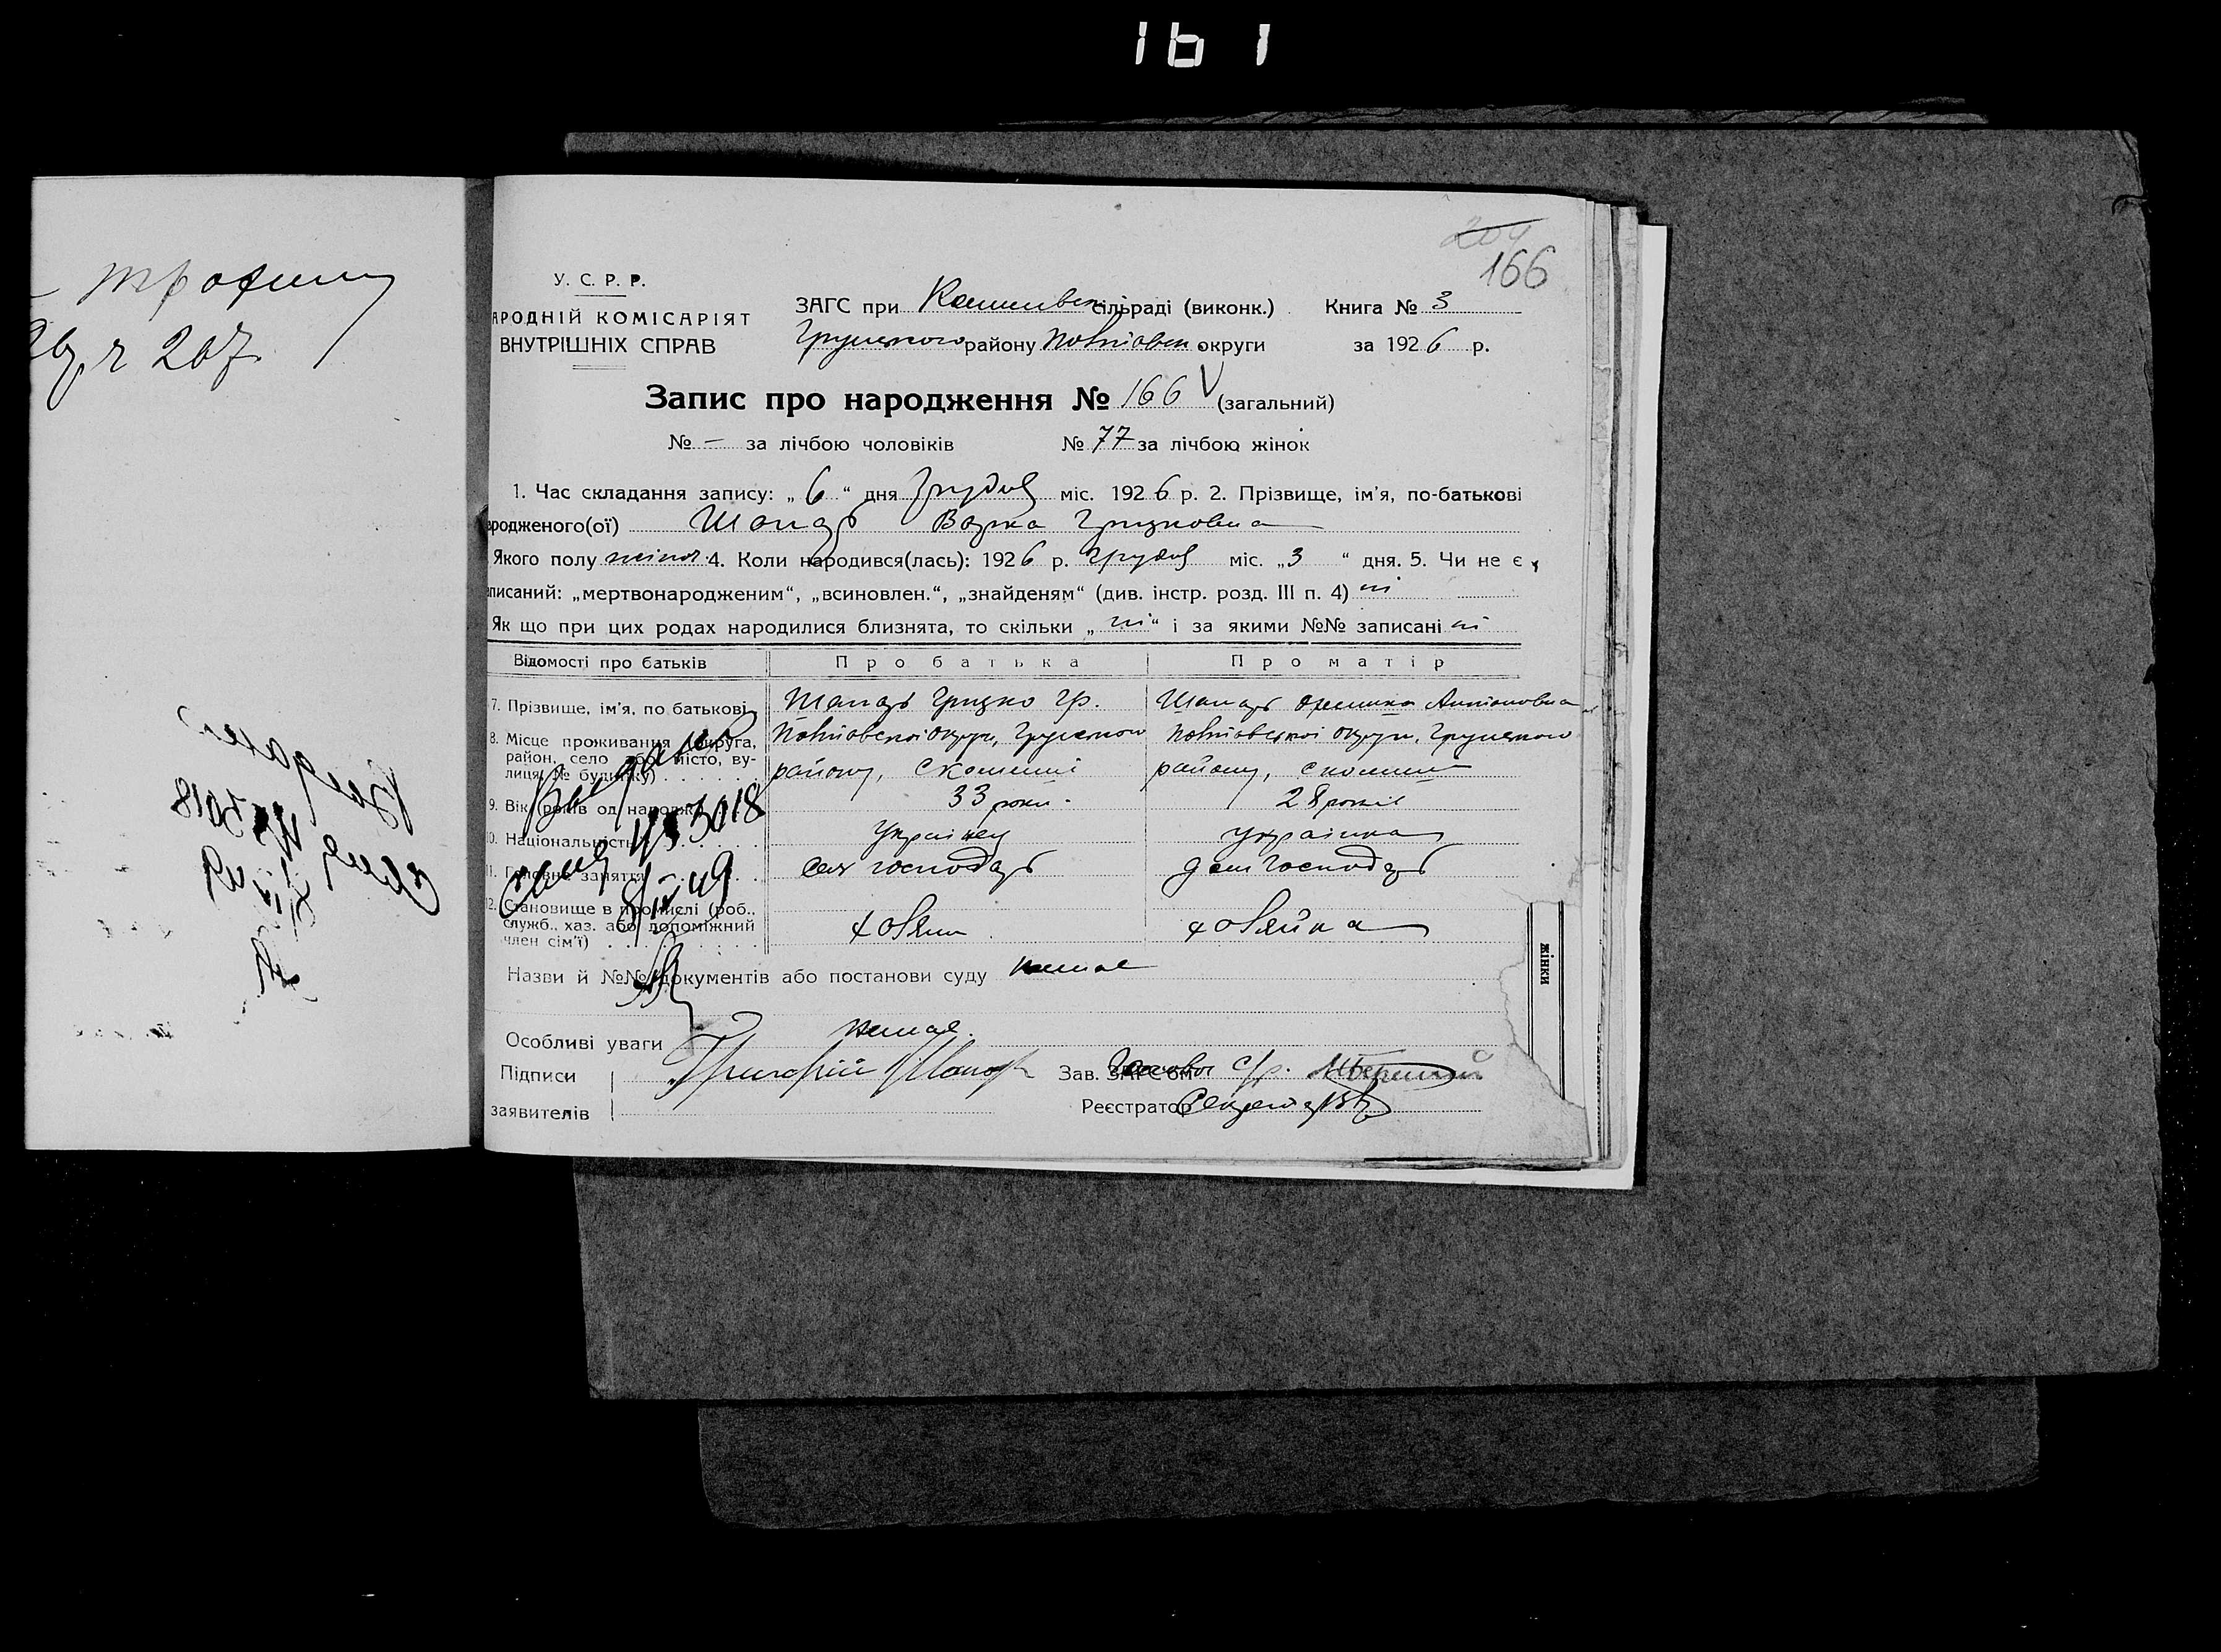 161
204
166
У. С. Р. Р.
АРОДНІЙ КОМІСАРІЯТ
ВНУТРІШНІХ СПРАВ
ЗАГС при сільраді (виконк.) Книга № 3
Грунського району Полтавськ округи за 1926 р.
Запис про народження № 166 (загальний)
№ — за лічбою чоловіків № 77 за лічбою жінок
1. Час складання запису: „ 6 “ дня Грудня міс. 1926 р. 2. Прізвище, ім'я, по-батькові
ародженого(ої) Шапар Варка Грицковна
Якого полу жіноч. 4. Коли народився(лась): 1926 р. Грудня міс. „3 “ дня. 5. Чи не є
аписаний: „мертвонародженим“, „всиновлен.“, „знайденям“ (див. інстр. розд. III п. 4) ні
Як що при цих родах народилися близнята, то скільки „ ні “ і за якими №№ записані ні
Відомості про батьків Про батька Про матір
7. Прізвище, ім'я, по батькові Шапарь Грицко Гр. Шапарь Антоновна
8. Місце проживання (округа, район, село або місто, вулиця, № будинку) Полтавської округи, Грунського Полтавської округи, Грунського
району, району,
9. Вік (років од народж.) 33 роки. 28 років
10. Національність Українец українка
11. Головне заняття сел господарь дом господарь
12. Становище в промислі (роб., служб., хаз. або допоміжний член сім'ї) хозяин хозяйка
Назви й №№ документів або постанови суду немає
Особливі уваги немає.
Підписи Григорій Шапар Зав. ЗАГС'ом Голова с/р.
заявителів Реєстратор Секретар
Выдано
3018
49
жінки
трофим
207